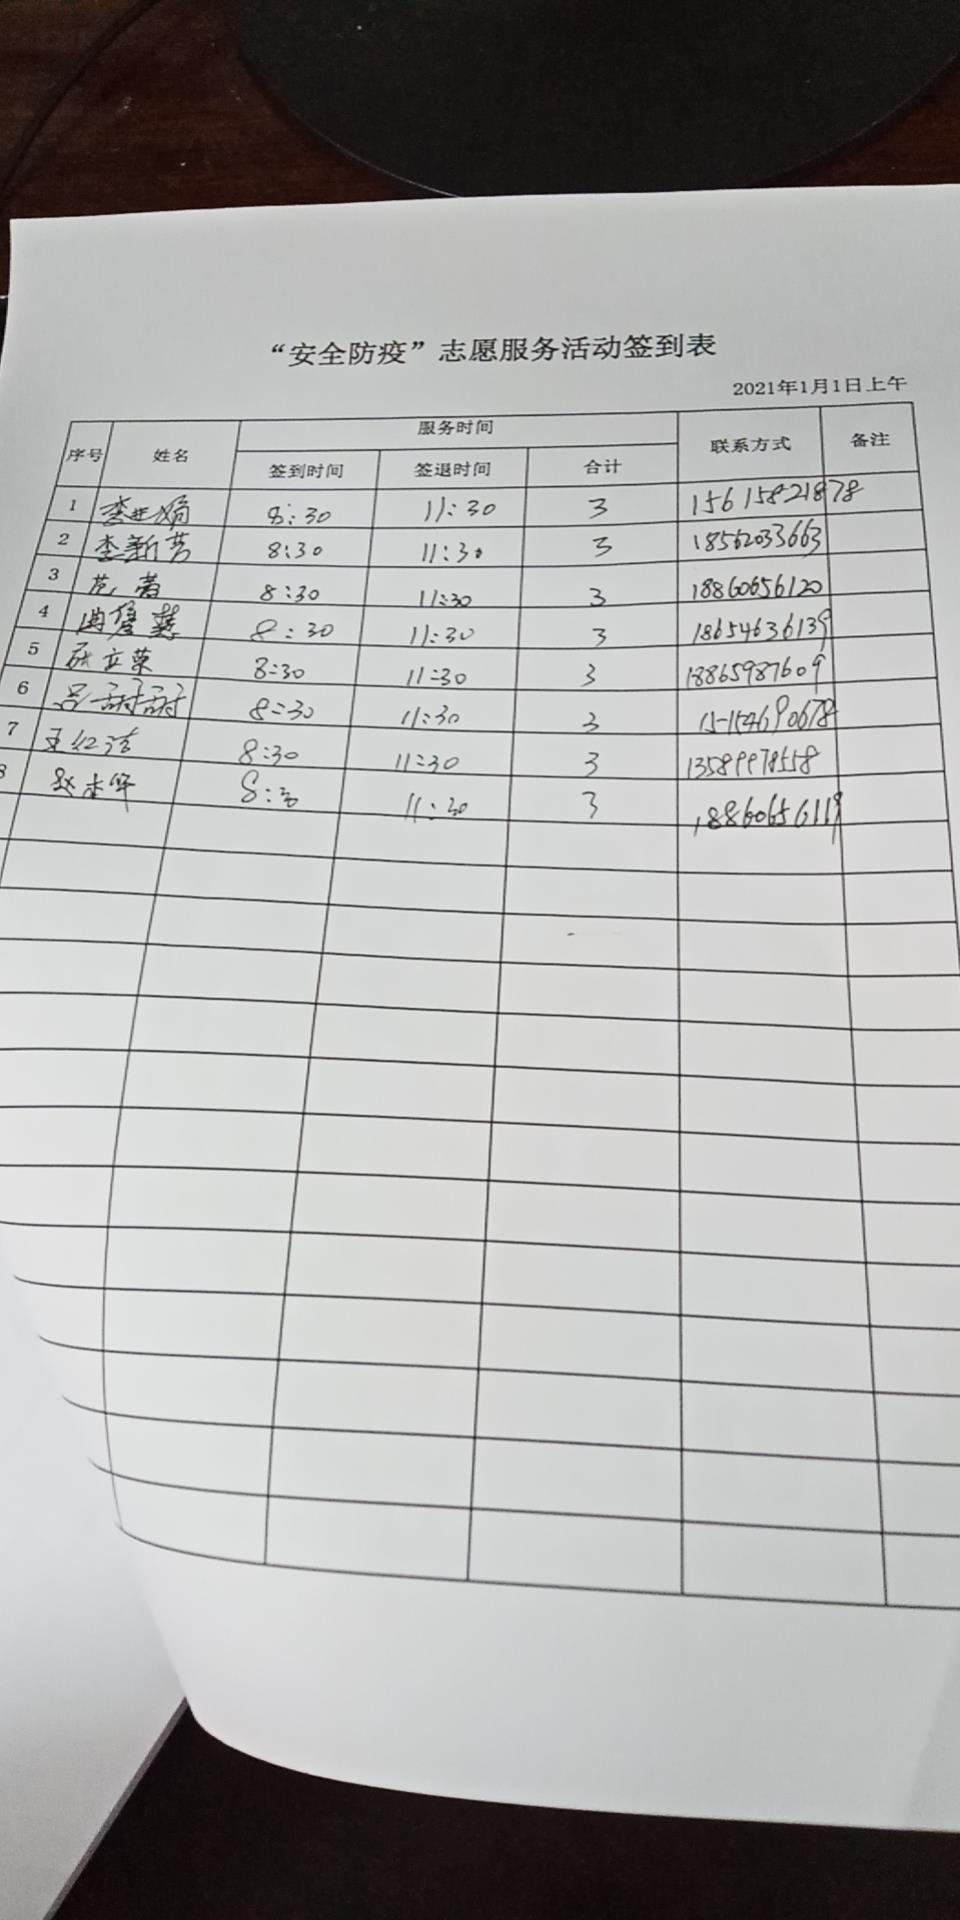 “安全防疫”志愿服务活动签到表
2021年1月1日上午
序号 姓名 服务时间 联系方式 备注
签到时间 签退时间 合计
1 8:30 11:30 3 15615821878
2 李新芳 8:30 11:30 3 18562033663
3 8:30 11:30 3 18860656120
4 8:30 11:30 3 18654636139
5 8:30 11:30 3 18865987609
6 吕甜甜 8:30 11:30 3 15154690678
7 王红洁 8:30 11:30 3 13589978558
8 8:30 11:30 3 18860656119